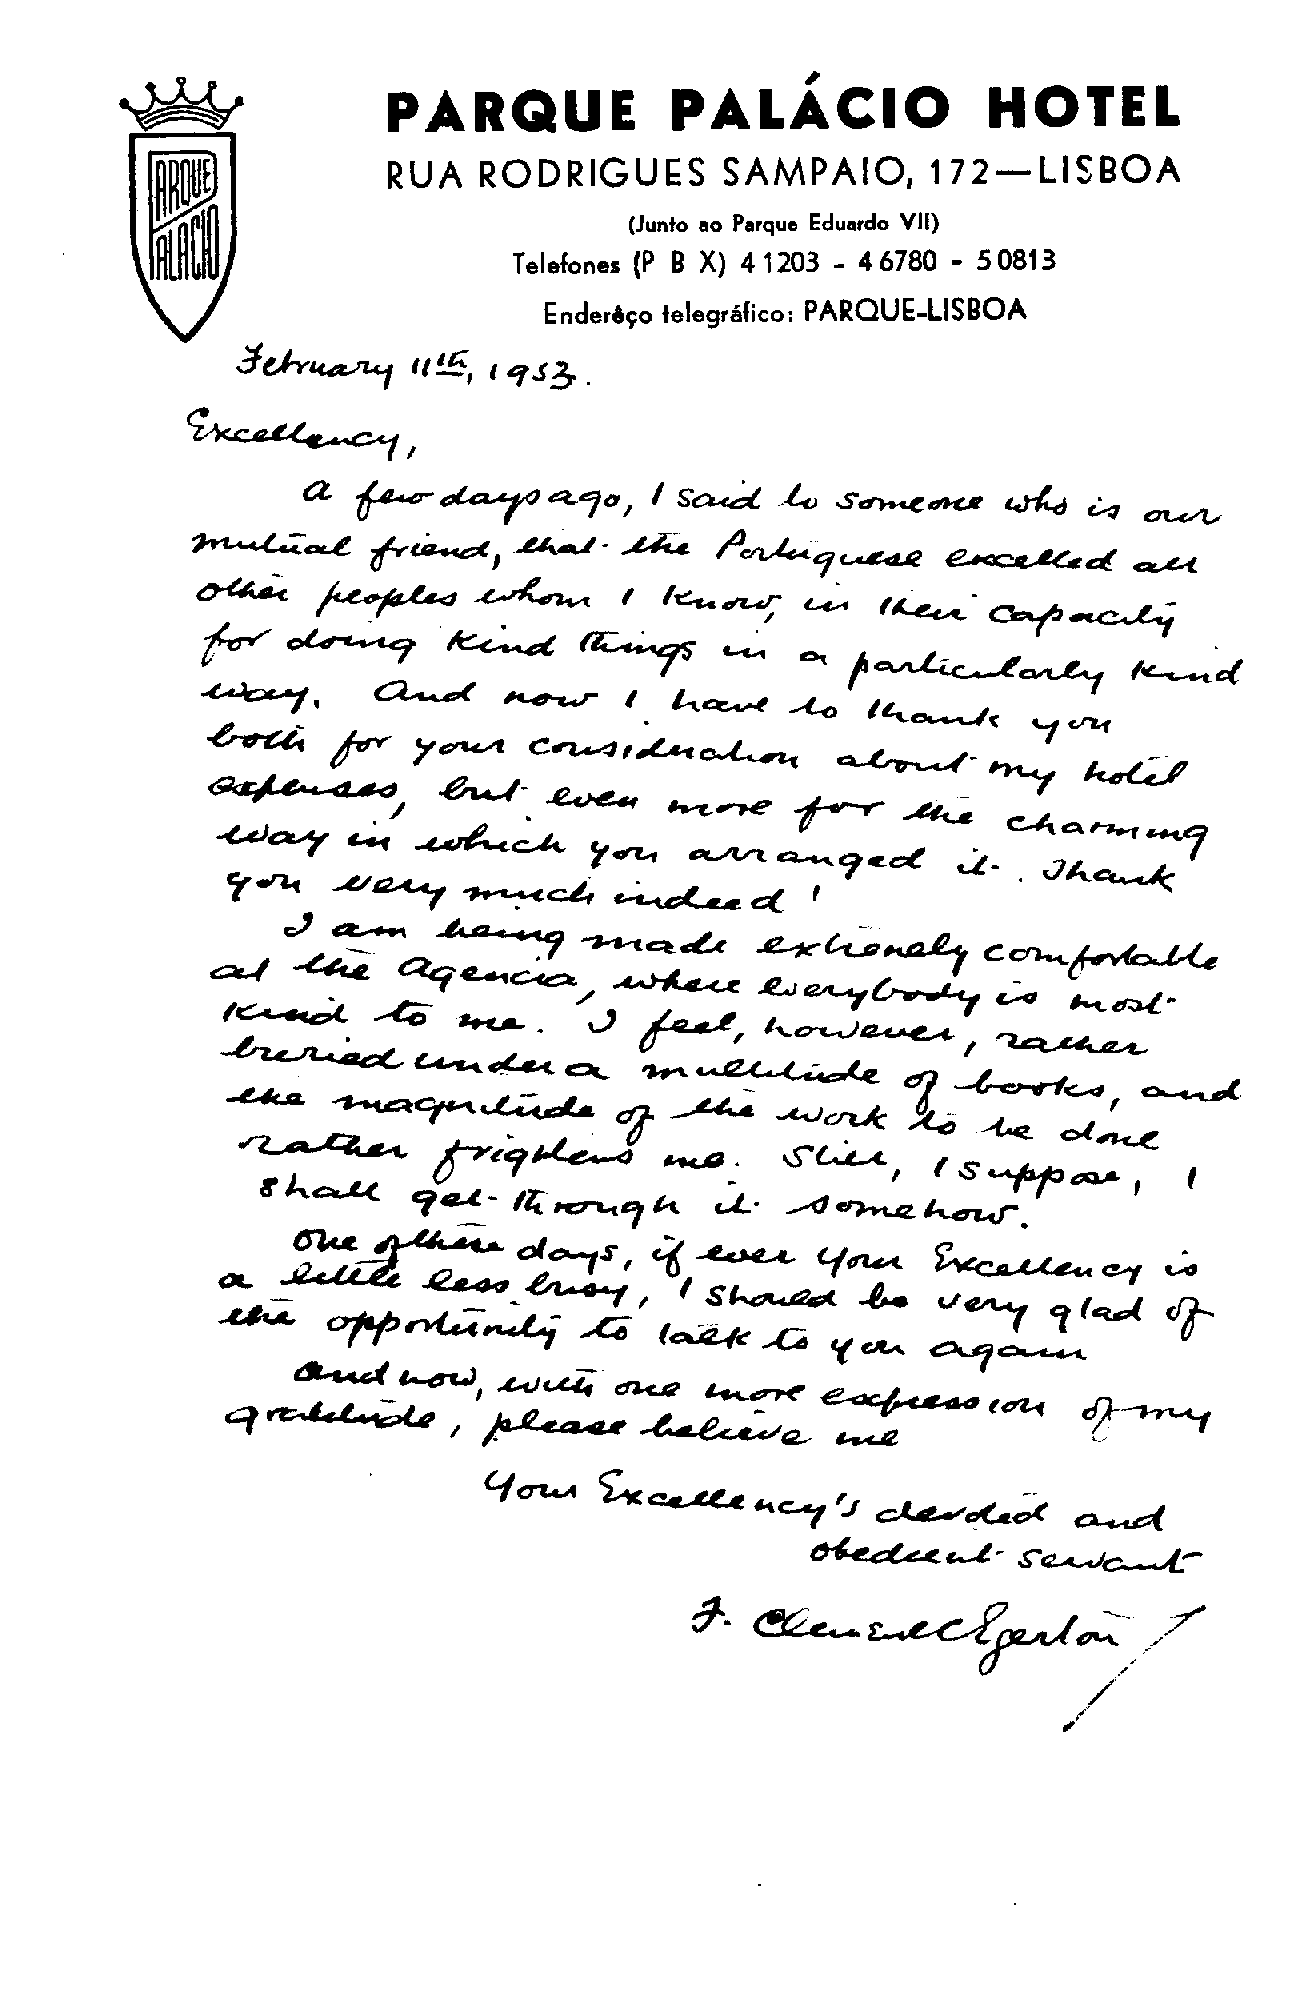 PARQUE PALACIO
PARQUE PALÁCIO HOTEL
RUA RODRIGUES SAMPAIO, 172—LISBOA
(Junto ao Parque Eduardo VII)
Telefones (P B X) 41203 - 46780 - 50813
Enderêço telegráfico: PARQUE-LISBOA
February 11th, 1953.
Excellency,
A few days ago, I said to someone who is our
mutual friend, that the Portuguese excelled all
other peoples whom I know, in their capacity
for doing kind things in a particularly kind
way. And now I have to thank you
both for your consideration about my hotel
expenses, but even more for the charming
way in which you arranged it. Thank
you very much indeed!
I am being made extremely comfortable
at the Agencia, where everybody is most
kind to me. I feel, however, rather
buried under a multitude of books, and
the magnitude of the work to be done
rather frightens me. Still, I suppose, I
shall get through it somehow.
One of these days, if ever Your Excellency is
a little less busy, I should be very glad of
the opportunity to talk to you again
And now, with one more expression of my
gratitude, please believe me
Your Excellency's devoted and
obedient servant
F. Clement C Egerton